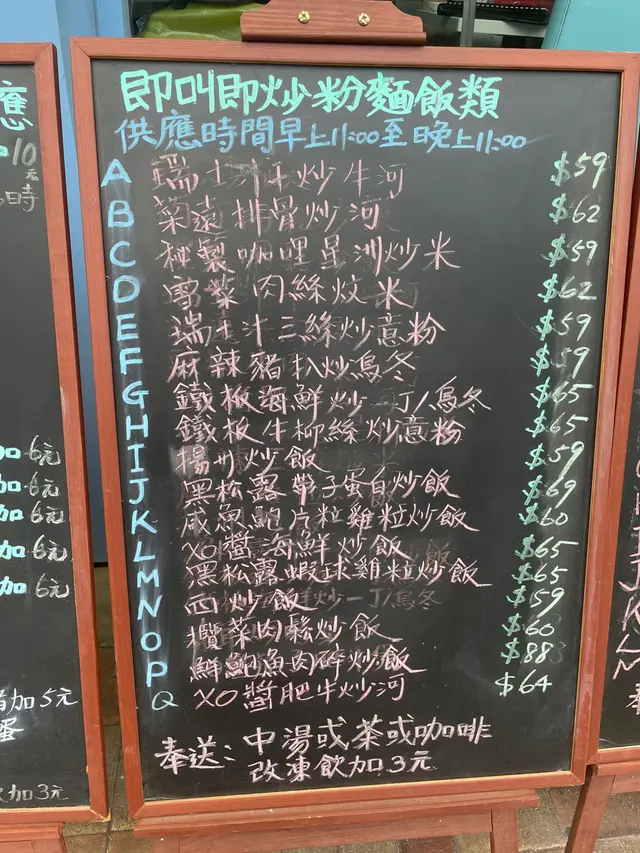 即叫即炒粉麵飯類
供應時間早上11:00至晚上11:00
A 瑞士汁干炒牛河 $59
B 菜遠排骨炒河 $62
C 秘製咖哩星洲炒米 $59
D 雪菜肉絲炆米 $62
E 瑞士汁三絲炒意粉 $59
F 麻辣豬扒炒烏冬 $59
G 鐵板海鮮炒一丁/烏冬 $65
H 鐵板牛柳絲炒意粉 $65
I 揚州炒飯 $59
J 黑松露帶子蛋白炒飯 $69
K 咸魚鮑片粒雞粒炒飯 $60
L XO醬海鮮炒飯 $65
M 黑松露蝦球雞粒炒飯 $65
N 西炒飯 $59
O 欖菜肉鬆炒飯 $60
P 鮮鮑魚肉碎炒飯 $88
Q XO醬肥牛炒河 $64
奉送:中湯或茶或咖啡
改凍飲加3元
應
10元
時
加6元
加6元
加6元
加6元
加6元
加5元
蛋
加3元